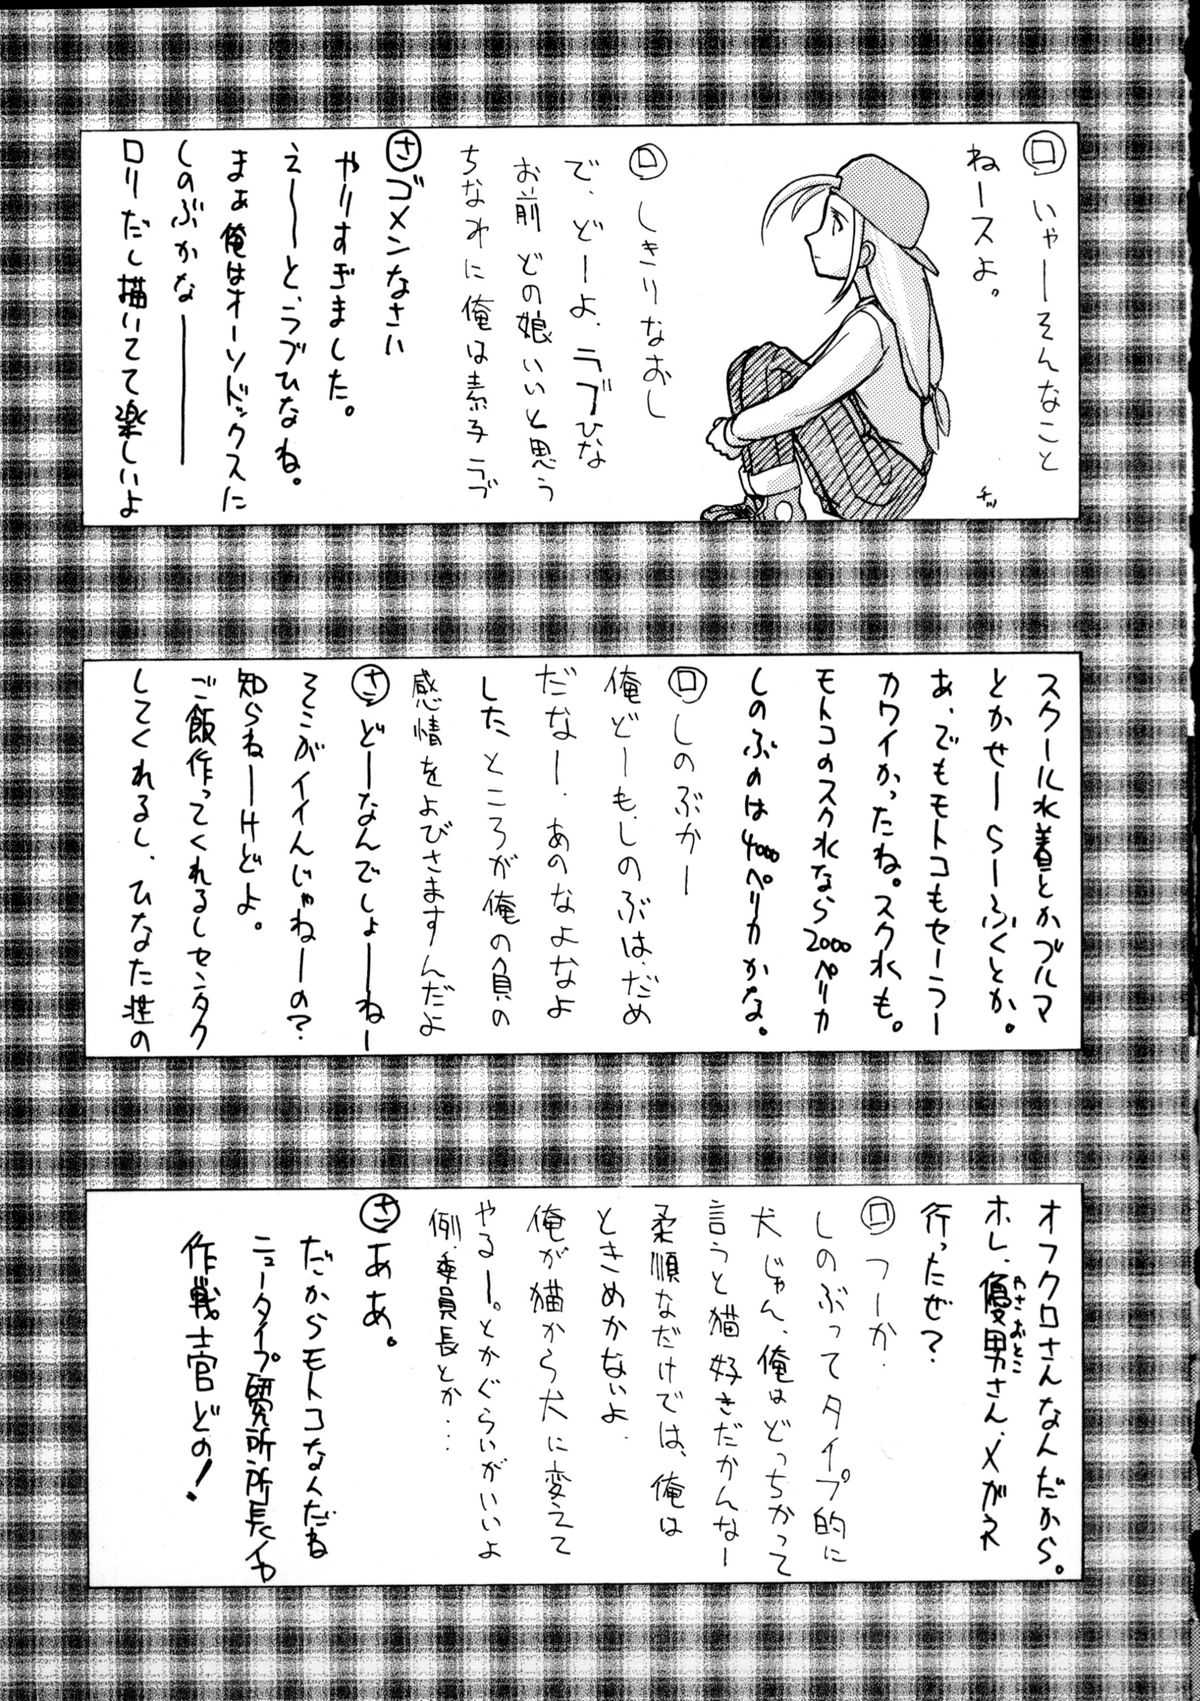 ロ いやーそんなこと
ねースよ。
チッ
ロ しきりなおし
で、どーよ、ラブひな
お前どの娘いいと思う
ちなみに俺は素子ラブ
さ ゴメンなさい
やりすぎました。
えーーと、ラブひなね。
まぁ俺はオーソドックスに
しのぶかなーーー
ロリだし描いてて楽しいよ
スクール水着とかブルマ
とかせーらーふくとか。
あ、でもモトコもセーラー
カワイかったね。スク水も。
モトコのスク水なら2000ペリカ
しのぶのは4000ペリカかな。
ロ しのぶかー
俺どーも、しのぶは、だめ
だなー、あのなよなよ
したところが俺の負の
感情をよびさますんだよ
さ どーなんでしょーねー
そこがイイんじゃねーの?
知らねーけどよ。
ご飯作ってくれるしセンタク
してくれるし、ひなた荘の
オフクロさんなんだから。
ホレ、優男さん、メがネ
やさおとこ
行ったぜ?
ロ つーか、
しのぶってタイプ的に
犬じゃん、俺はどっちかって
言うと猫好きだかんなー
柔順なだけでは、俺は
ときめかないよ
俺が猫から犬に変えて
やるー。とかぐらいがいいよ
例、委員長とか…
さ ああ。
だからモトコなんだね
ニュータイプ研究所所長、イヤ
作戦士官どの!